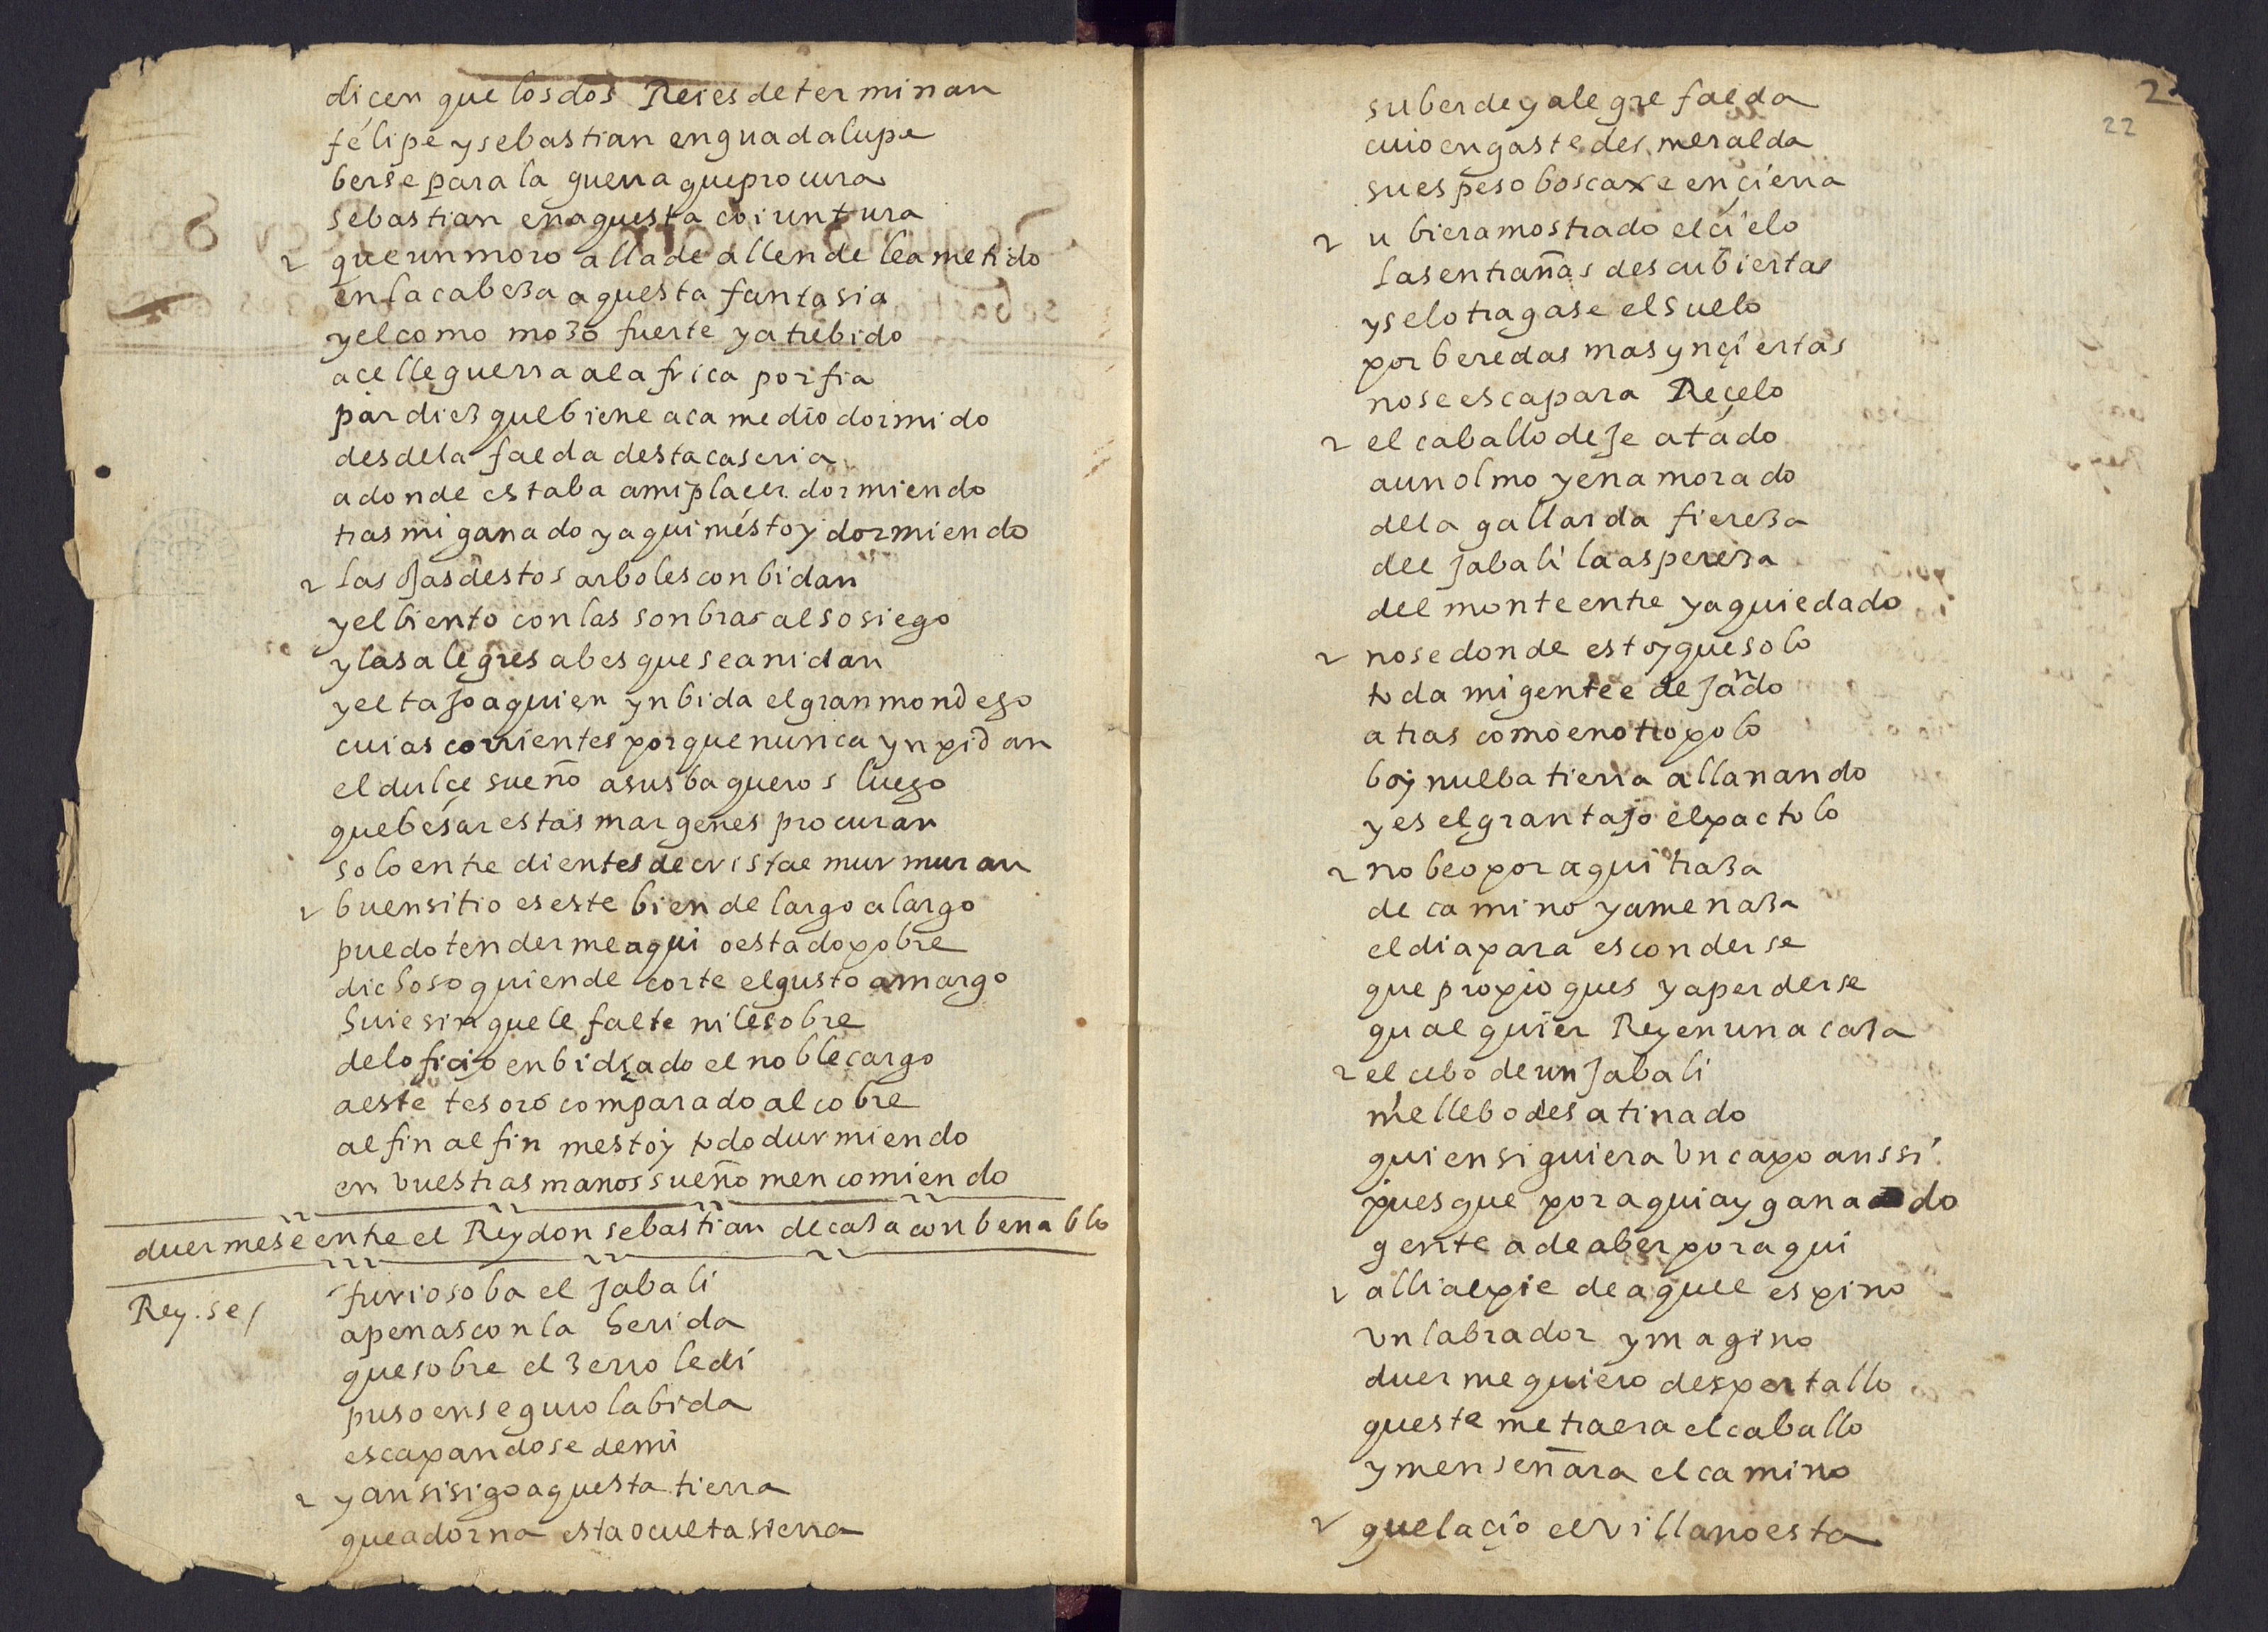 dicen que los dos Reies determinan
felipe y sebastian en guadalupe
berse para la guerra que procura
sebastian en aquesta coiuntura
que un moro alla de allende le a metido
en la cabeza aquesta fantasia
y el como mozo fuerte y atrebido
acelle guerra al africa porfia
par diez que biene aca medio dormido
desde la falda desta caseria
adonde estaba a mi placer dormiendo
tras mi ganado y aqui mestoy dormiendo
las ojas destos arboles conbidan
y el biento con las sonbras al sosiego
y las alegres abes que se anidan
y el tajo a quien ynbida el gran mondego
cuias corrientes porque nunca ynpidan
el dulçe sueño a sus baqueros luego
que besar estas margenes procuran
solo entre dientes de cristal murmuran
buen sitio es este bien de largo a largo
puedo tenderme aqui o estado pobre
dichoso quien de corte el gusto amargo
huie sin que le falte ni le sobre
del oficio enbidiado el noble cargo
a este tesoro comparado al cobre
al fin al fin mestoy todo durmiendo
en vuestras manos sueño mencomiendo
duermese entre el Rey don sebastian de caza con benablo
Rey. se/ furioso ba el jabali
apenas con la herida
que sobre el zerro le di
puso en seguro la bida
escapandose de mi
y ansi sigo aquesta tierra
que adorna esta oculta sierra
2
22
su berde y alegre falda
cuio engaste desmeralda
su espeso boscaxe ençierra
ubiera mostrado el cielo
las entrañas descubiertas
y se lo tragase el suelo
por beredas mas ynçiertas
no se escapara Reçelo
el caballo deje atado
a un olmo y enamorado
de la gallarda fiereza
del jabali la aspereza
del monte entre y aqui e dado
no se donde estoy que solo
toda mi gente e dejando
atras como en otro polo
boy nueba tierra allanando
y es el gran tajo el pactolo
no beo por aqui traza
de camino y amenaza
el dia para esconderse
que propio ques y a perderse
qualquier Rey en una caza
el cebo de un jabali
me llebo desatinado
quien siguiera Un capo anssi
pues que por aqui ay ganado
gente a de aber por aqui
alli al pie de aquel espino
vn labrador ymagino
duerme quiero despertallo
queste me traera el caballo
y menseñara el camino
que laçio el villano esta